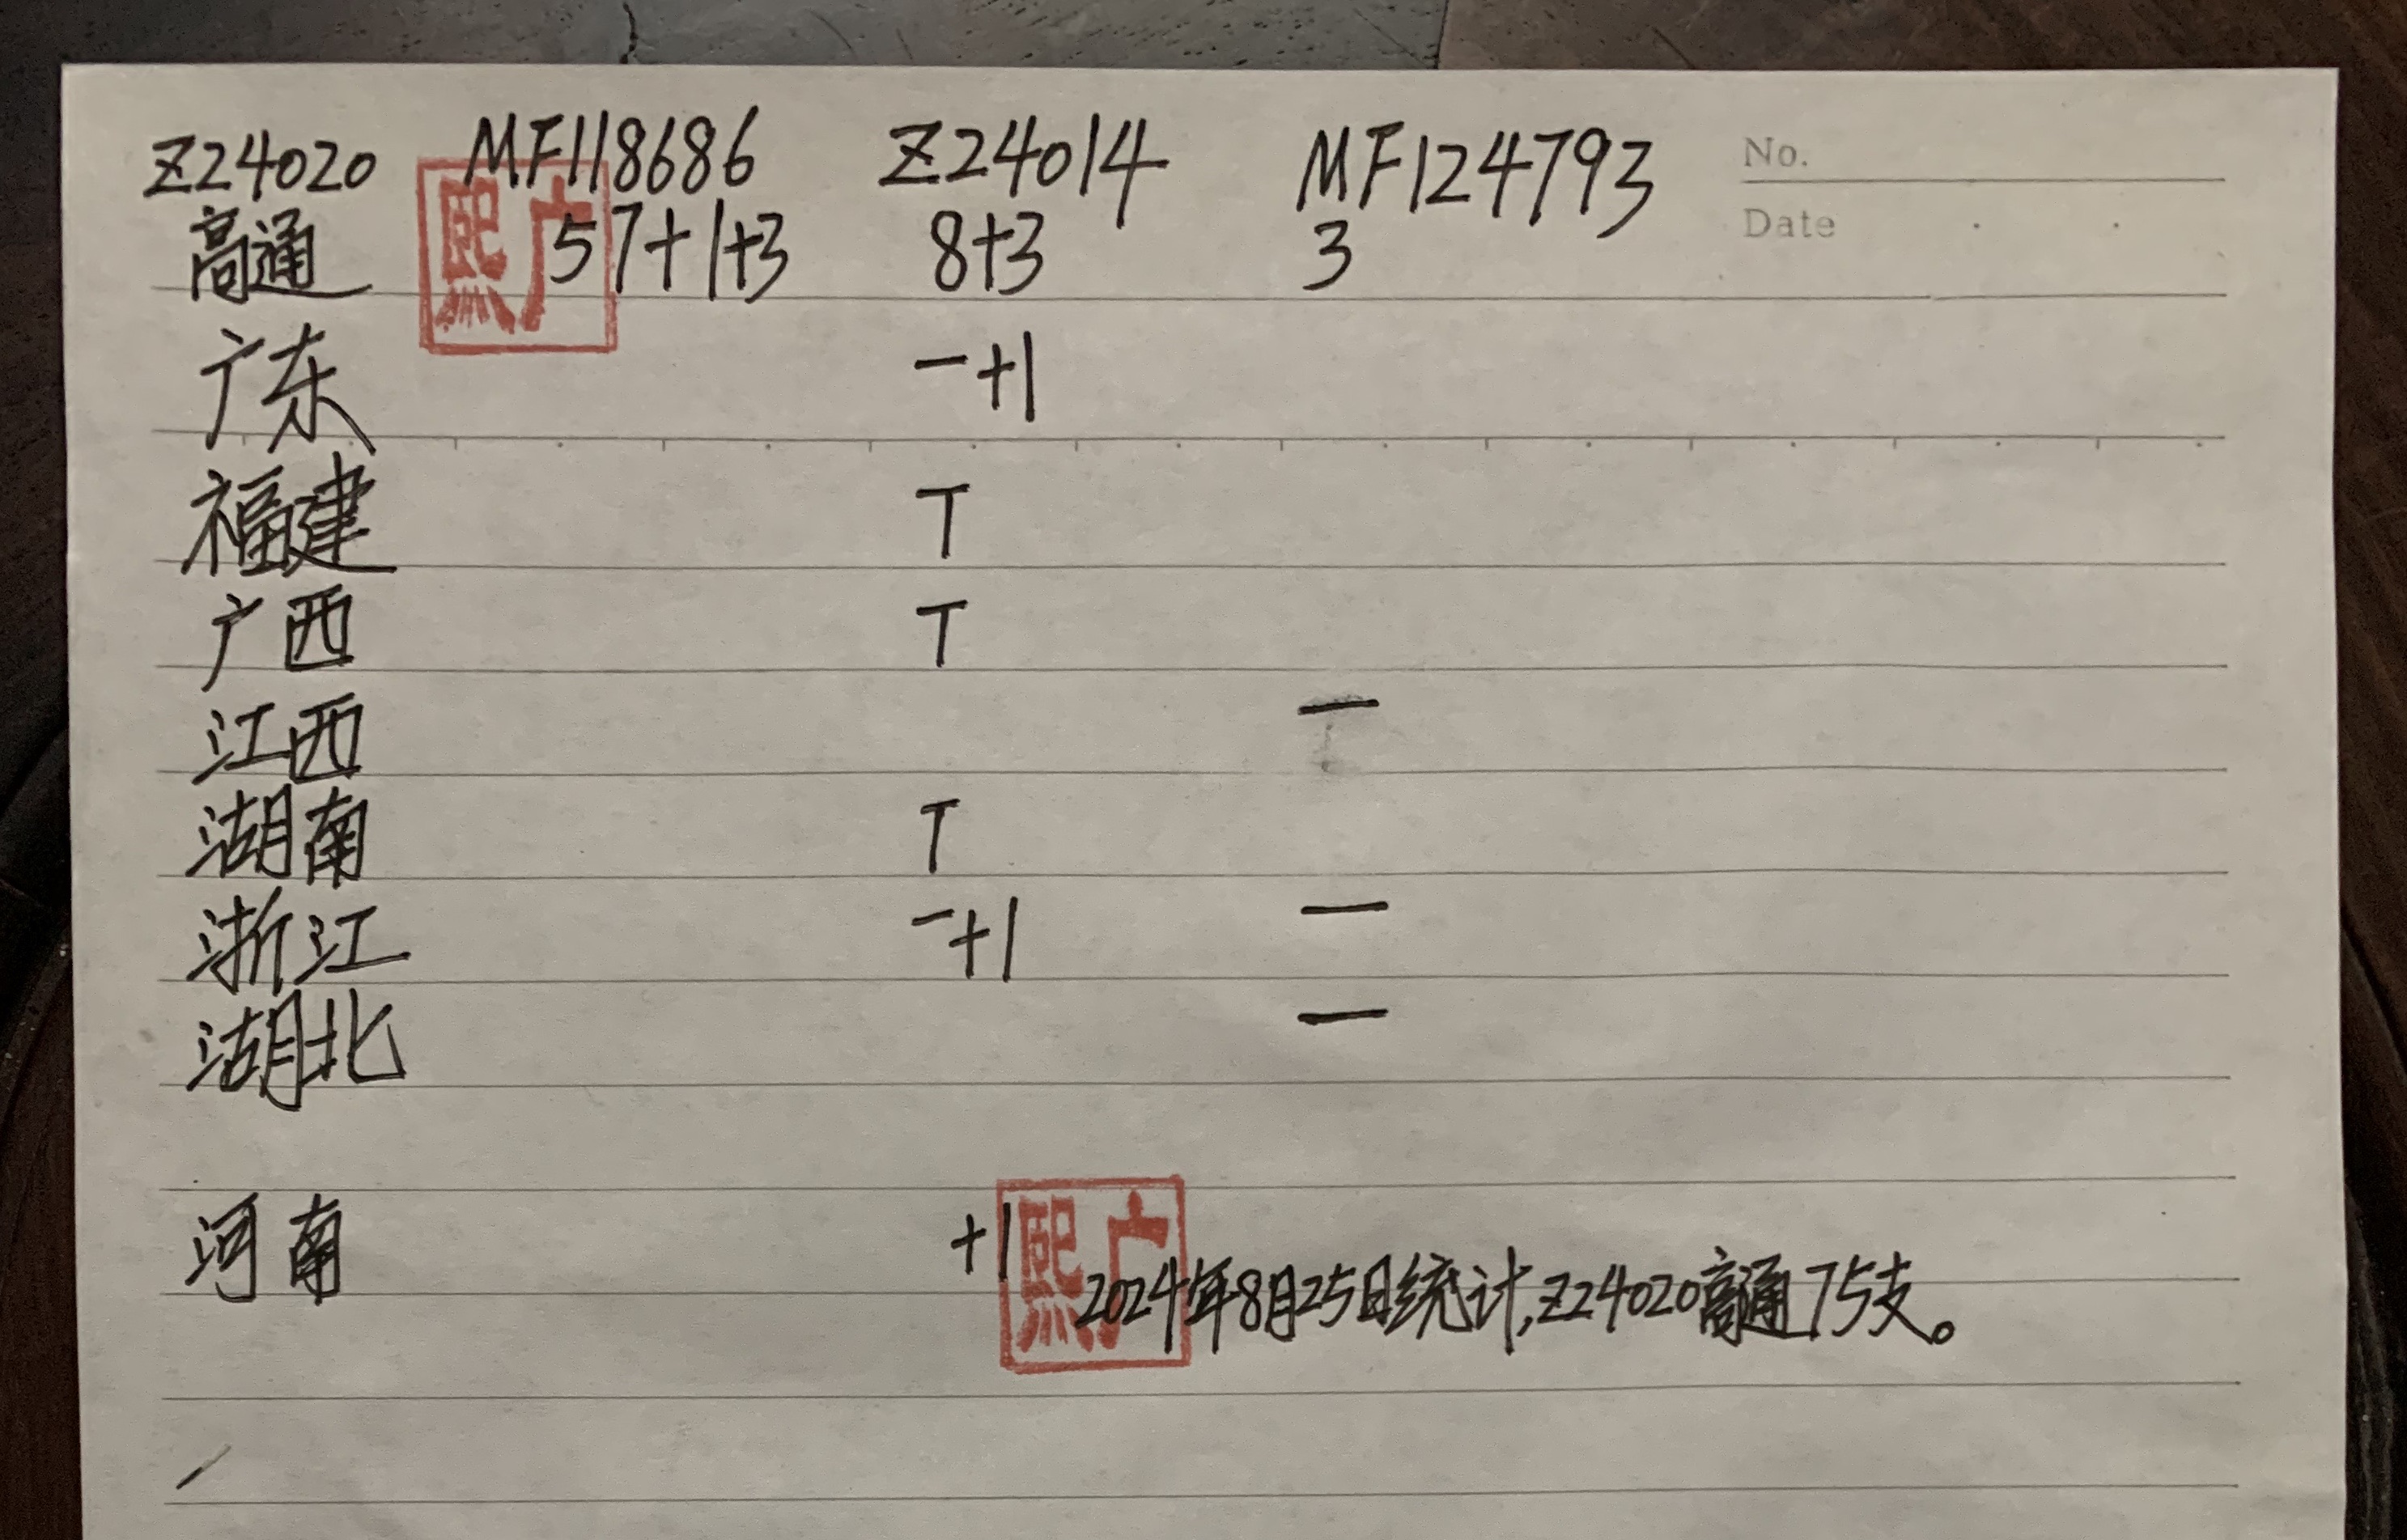 Z24020 MF118686 Z24014 MF124793 No.
高通 57+1+3 8+3 3 Date
熙广
广东 一+1
福建 T
广西 T
江西 一
湖南 T
浙江 一+1 一
湖北 一
河南 +1
熙广
2024年8月25日统计,Z24020高通75支。